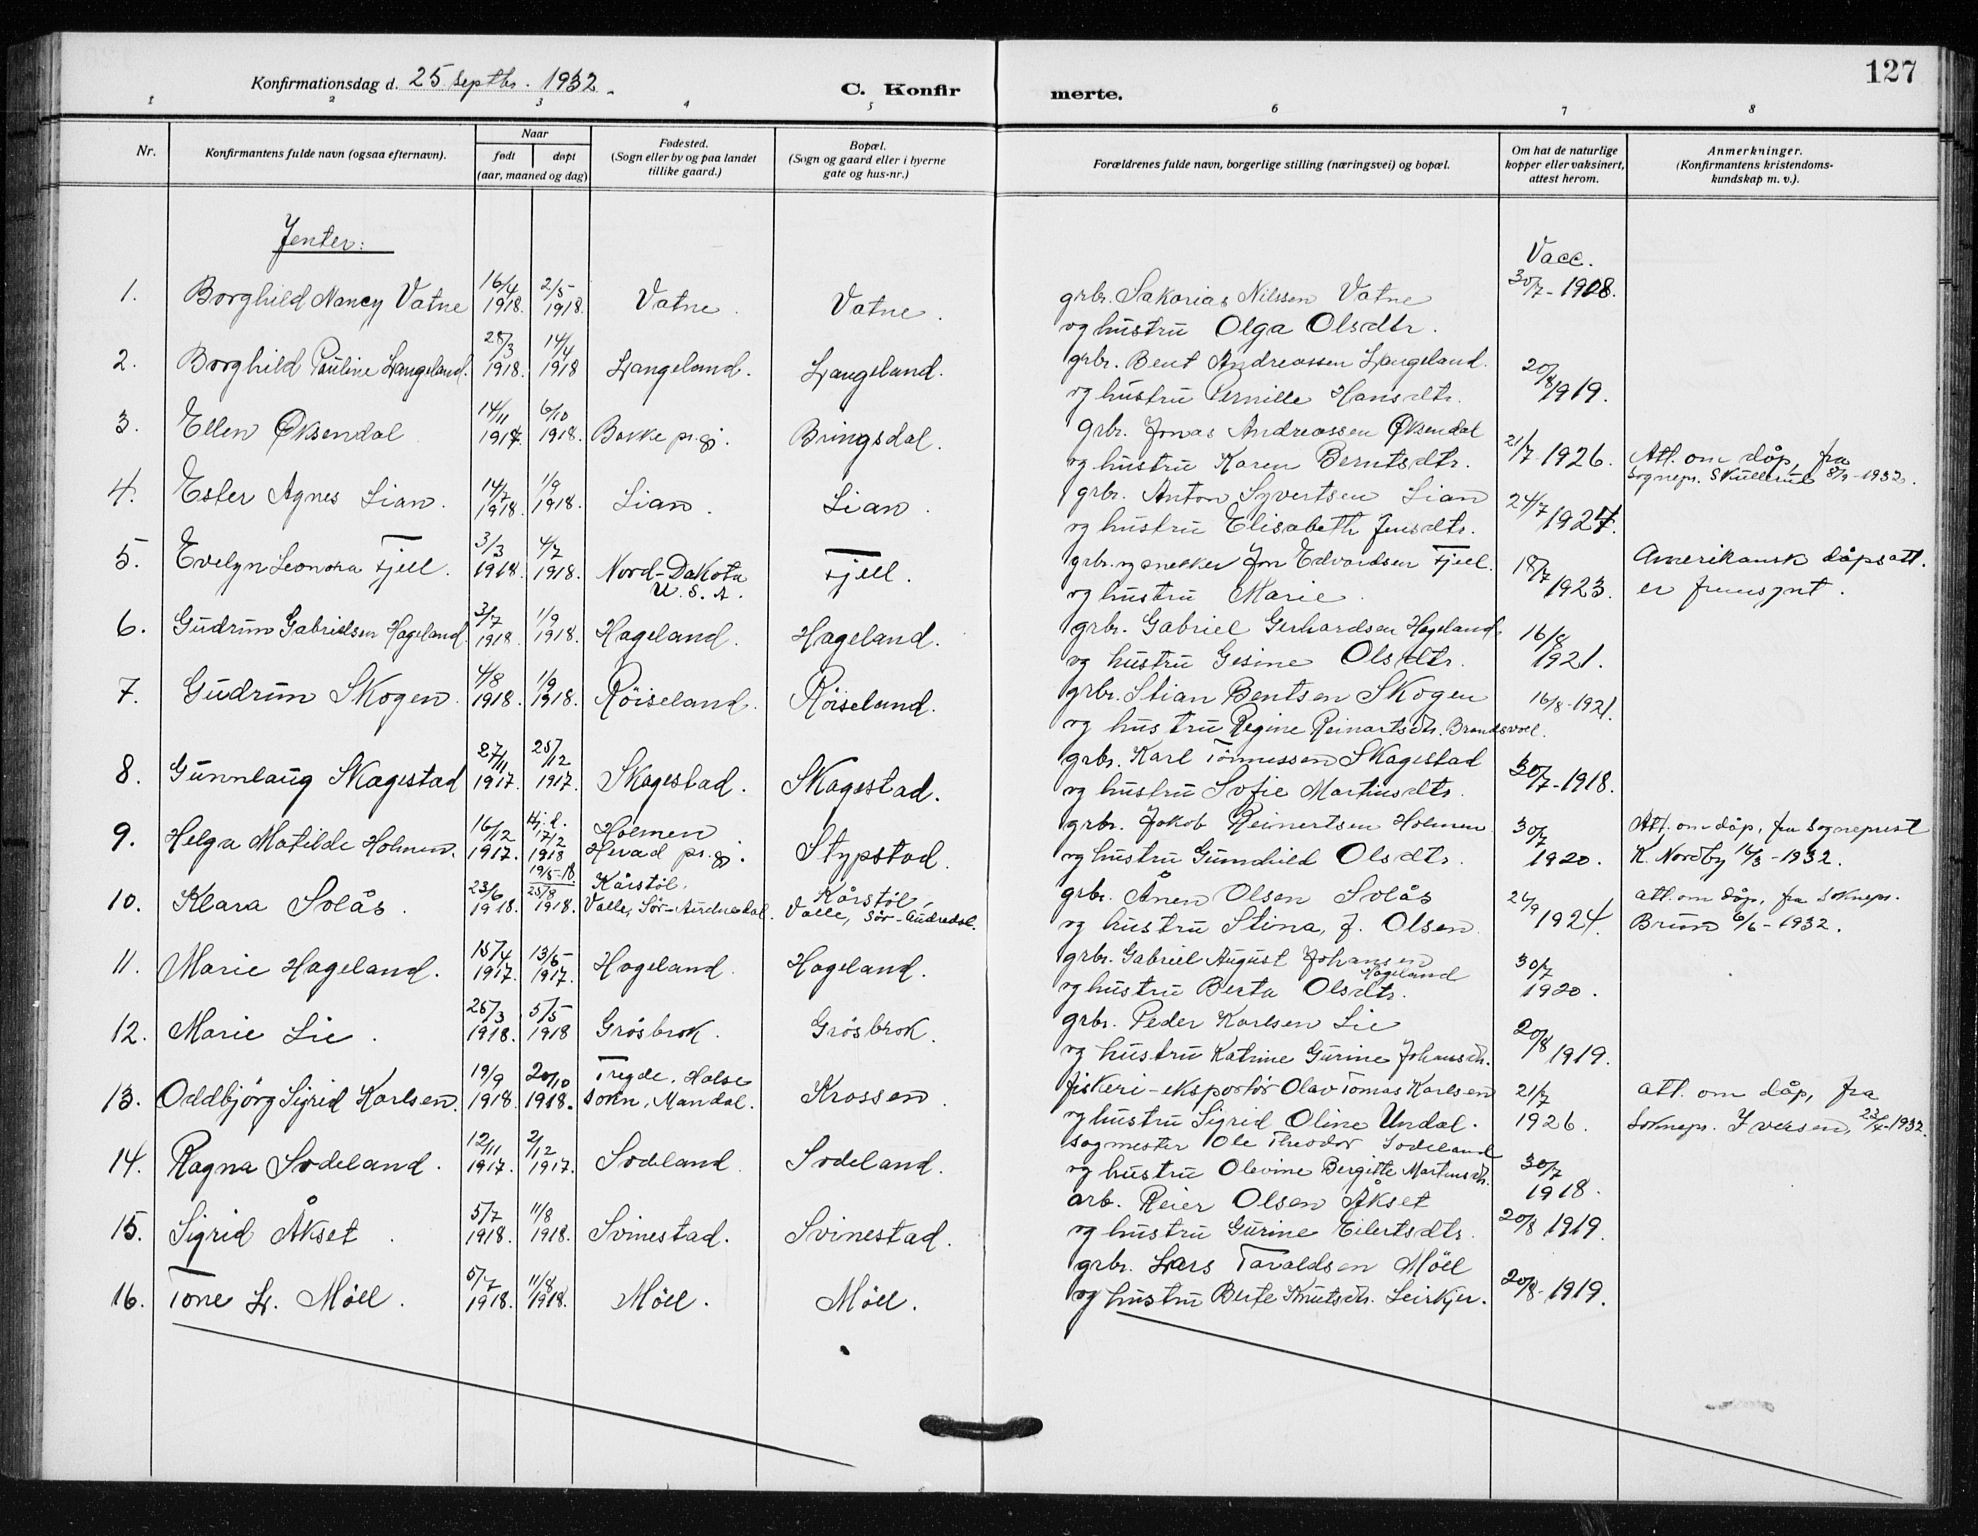 127
Konfirmationsdag d. 25 septbr. 1932.
C. Konfirmerte.
1 2 3 4 5 6 7 8
Nr.
Konfirmantens fulde navn (ogsaa efternavn).
Naar
født
døpt
(aar, maaned og dag)
Fødested.
(Sogn eller by og paa landet
tillike gaard.)
Bopæl.
(Sogn og gaard eller i byerne
gate og hus-nr.)
Forældrenes fulde navn, borgerlige stilling (næringsvei) og bopæl.
Om hat de naturlige
kopper eller vaksinert,
attest herom.
Anmerkninger.
(Konfirmantens kristendoms-
kundskap m. v.).
Jenter:
Vacc.
1. Borghild Nancy Vatne 16/4 1918. 2/5 1918. Vatne. Vatne. grbr. Sakarias Nilssen Vatne 30/7-1918.
og hustru Olga Olsdtr.
2. Borghild Pauline Langeland. 28/3 1918. 14/4 1918 Langeland. Langeland. grbr. Bent Andreassen Langeland. 20/8 1919.
og hustru Pernille Hansdtr.
3. Ellen Øksendal 14/11 1917. 6/10 1918. Bakke pr.gj. Bringsdal. grbr. Jonas Andreassen Øksendal
og hustru Karen Berntsdtr. 21/7-1926. Att. om dåp, fra
sognepr. Skullerud 8/9-1932.
4. Ester Agnes Lian. 14/7 1918. 1/9 1918. Lian. Lian. grbr. Anton Syvertsen Lian
og hustru Elisabeth Jensdtr. 24/7 1927.
5. Evelyn Leonora Fjell. 3/3 1918. 4/7 1918. Nord-Dakota
U.S.A. Fjell. grbr. og snekker Jon Edvardsen Fjell. 18/7 1923. Amerikansk dåpsatt.
og hustru Marie. er fremsynt.
6. Gudrun Gabrielsen Hageland. 3/7 1918. 1/9 1918. Hageland. Hageland. grbr. Gabriel Gerhardsen Hageland 16/8 1921.
og hustru Gesine Olsdtr.
7. Gudrun Skogen. 4/8 1918. 1/9 1918. Røiseland. Røiseland. grbr. Stian Bentsen Skogen 16/8-1921.
og hustru Regine Reinartsdtr. Brandsvol.
8. Gunnlaug Skagestad 27/11 1917. 25/12 1917. Skagestad. Skagestad. grbr. Karl Tønnessen Skagestad
og hustru Sofie Martinsdtr. 30/7-1918.
9. Helga Matilde Holmen. 16/12 1917. Hj.d. 17/2 1918 Holmen
Herad pr.gj. Stypstad. grbr. Jakob Reinertsen Holmen 30/7 1920. Att. om dåp, fra sogneprest
og hustru Gunhild Olsdtr. K. Nordby 16/3-1932.
10. Klara Solås. 23/6 1918. 19/5-18. 25/8 1918. Kårstøl,
Valle, Sør-Audnedal. Kårstøl,
Valle, Sør-Audnedal. grbr. Ånen Olsen Solås 26/9 1924. att. om dåp, fra soknepr.
og hustru Stina, f. Olsen. Bruun 6/6-1932.
11. Marie Hageland. 15/4 1917. 13/5 1917. Hageland. Hageland. grbr. Gabriel August Johansen
Hageland
og hustru Berta Olsdtr. 30/7 1920.
12. Marie Lie. 25/3 1918. 5/5 1918 Grøsbrok. Grøsbrok. grbr. Peder Karlsen Lie
og hustru Katrine Gurine Johansdtr. 20/8 1919.
13. Oddbjørg Sigrid Karlsen. 19/9 1918. 20/10 1918. Tregde, Halse
sokn, Mandal. Krossen. fiskeri-eksportør Olav Tomas Karlsen 21/7 1926. att. om dåp, fra
og hustru Sigrid Oline Undal. Soknepr. Iversen, 23/4-1932.
14. Ragna Sodeland. 12/11 1917. 2/12 1917. Sodeland. Sodeland. sagmester Ole Theodor Sodeland
og hustru Olevine Bergitte Martinsdtr. 30/7 1918.
15. Sigrid Åkset. 5/7 1918. 11/8 1918. Svinestad. Svinestad. arb. Reier Olsen Åkset
og hustru Gurine Eilertsdtr. 20/8 1919.
16. Tone L. Möll. 5/7 1918. 11/8 1918. Möll. Möll. grbr. Lars Tavaldsen Möll
og hustru Berte Knutsdtr. Leirkjer. 20/8-1919.